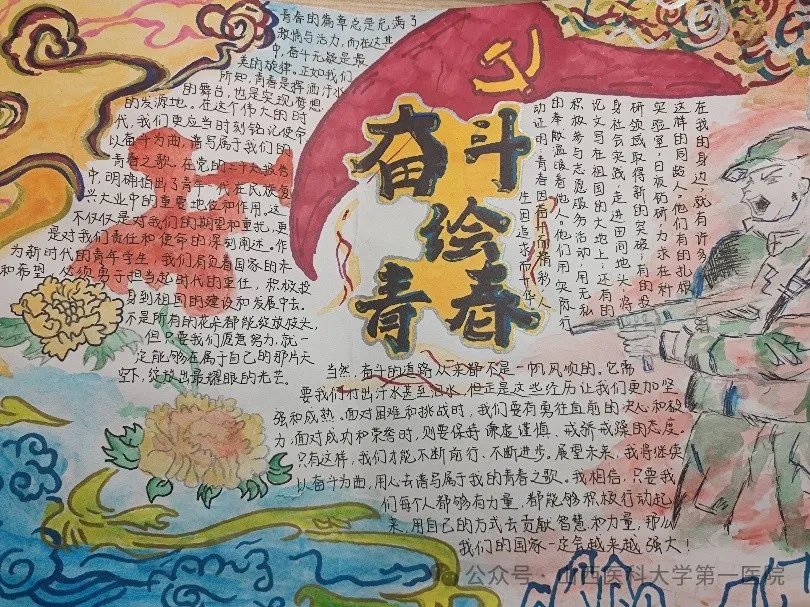 青春的篇章总是充满了
激情与活力,而在这其
中,奋斗无疑是最
美的旋律。正如我们
所知,青春是挥洒汗水
的舞台,也是实现梦想
的发源地。在这个伟大的时
代,我们更应当时刻铭记使命
以奋斗为曲,谱写属于我们的
青春之歌。在党的二十大报告
中,明确指出了青年一代在民族复
兴大业中的重要地位和作用,这
不仅仅是对我们的期望和重托,更
是对我们责任和使命的深刻阐述。作
为新时代的青年学生,我们肩负着国家的未
和希望,必须勇于担当起时代的重任,积极投
身到祖国的建设和发展中去。
不是所有的花朵都能绽放枝头,
但只要我们愿意努力,就一
定能够在属于自己的那片天
空下,绽放出最耀眼的光芒。
奋斗
绘
青春
在我的身边,就有许多
这样的同龄人。他们有的扎根
实验室,日夜钻研,力求在科
研领域取得新的突破;有的投
身社会实践,走进田间地头,将
论文写在祖国的大地上;还有的
积极参与志愿服务活动,用无私
的奉献温暖着他人。他们用实际行
动证明,青春因奋斗而精彩,人
生因追求而升华。
当然,奋斗的道路从来都不是一帆风顺的。它需
要我们付出汗水甚至泪水,但正是这些经历让我们更加坚
强和成熟。面对困难和挑战时,我们要有勇往直前的决心和毅
力;面对成功和荣誉时,则要保持谦虚谨慎、戒骄戒躁的态度。
只有这样,我们才能不断前行、不断进步。展望未来,我将继续
以奋斗为曲,用心去谱写属于我的青春之歌。我相信,只要我
们每个人都够有力量,都能够积极行动起
来,用自己的方式去贡献智慧和力量,那么
我们的国家一定会越来越强大!
公众号·山西医科大学第一医院